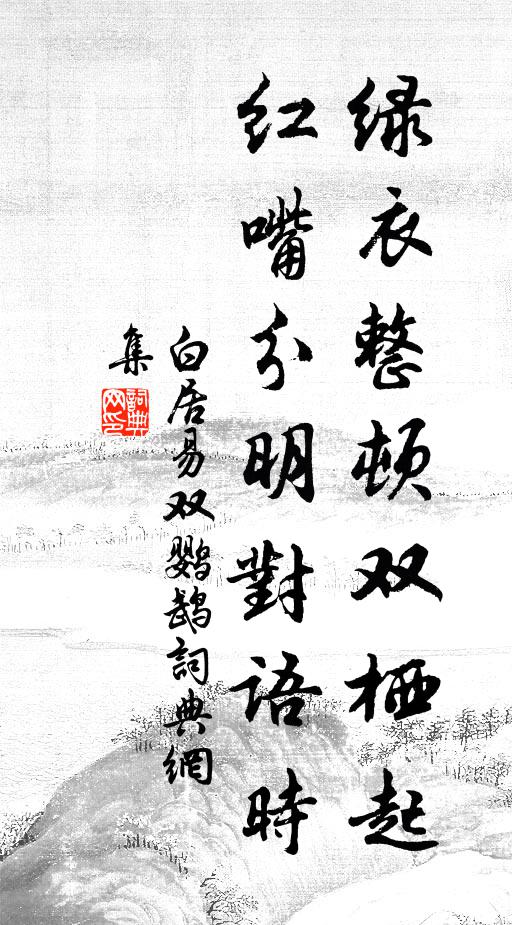 绿衣整顿双栖起
红嘴分明對語時
白居易双鹦鹉詞典網
集
詞典网印